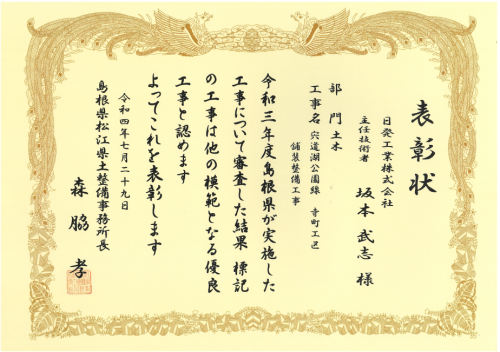 表彰状
日発工業株式会社
主任技術者
坂本武志様
部門 土木
工事名 宍道湖公園線 寺町工区
舗装整備工事
令和三年度島根県が実施した
工事について審査した結果 標記
の工事は他の模範となる優良
工事と認めます
よってこれを表彰します
令和四年七月二十九日
島根県松江県土整備事務所長
森脇孝